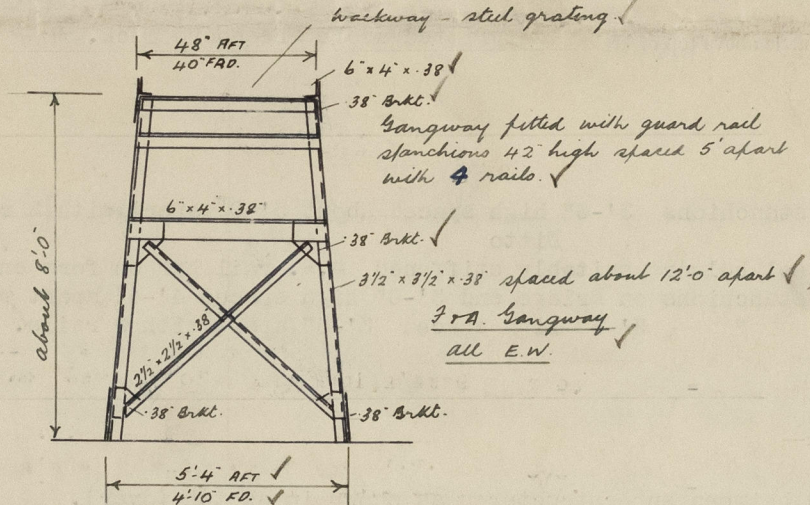 Walkway - steel grating.
48" AFT
40" FRD.
6" x 4" x .38
.38" Brkt.
Gangway fitted with guard rail
stanchions 42" high spaced 5' apart
with 4 rails.
6" x 4" x .38"
.38" Brkt.
3 1/2" x 3 1/2" x .38 spaced about 12'-0" apart
about 8'-0"
F & A. Gangway
all E.W.
2 1/2" x 2 1/2" x .38"
.38" Brkt.
.38" Brkt.
5'-4" AFT
4'-10" FD.